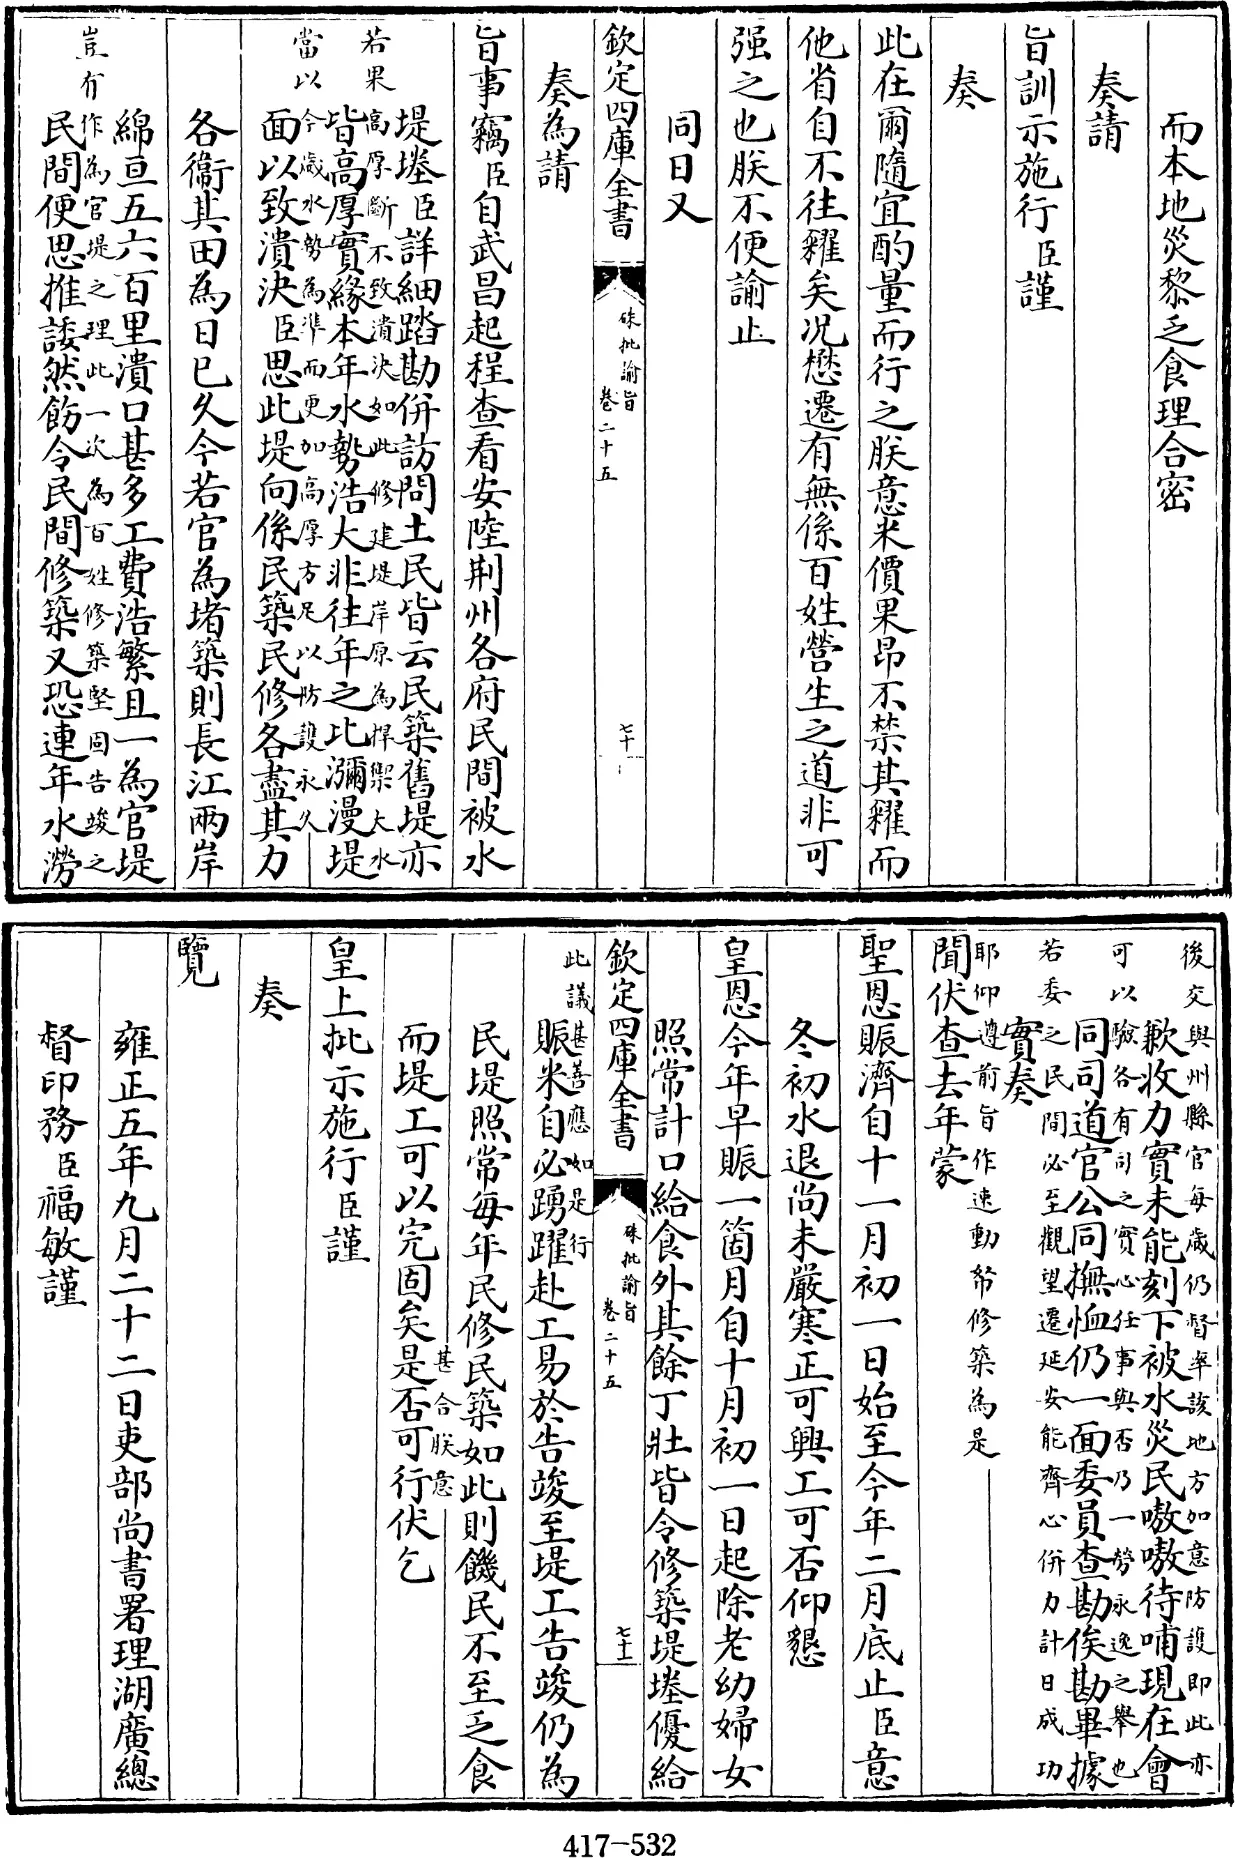 而本地災黎乏食理合密
奏請
旨訓示施行臣謹
奏
此在爾隨宜酌量而行之朕意米價果昂不禁其糴而
他省自不往糴矣况懋遷有無係百姓營生之道非可
强之也朕不便諭止
同日又
欽定四庫全書
硃批諭旨
卷二十五
七十
奏為請
旨事竊臣自武昌起程查看安陸荆州各府民間被水
堤塍臣詳細踏勘併訪問土民皆云民築舊堤亦
若果高厚斷不致潰決如此修建堤岸原為捍禦大水
皆高厚實緣本年水勢浩大非往年之比瀰漫堤
當以今歲水勢為準而更加高厚方足以防護永久
面以致潰決臣思此堤向係民築民修各盡其力
各衞其田為日已久今若官為堵築則長江兩岸
綿亘五六百里潰口甚多工費浩繁且一為官堤
豈有作為官堤之理此一次為百姓修築堅固告竣之
民間便思推諉然飭令民間修築又恐連年水澇
後交與州縣官每歲仍督率該地方加意防護即此亦
歉收力實未能刻下被水災民嗷嗷待哺現在會
可以驗各有司之實心任事與否乃一勞永逸之舉也
同司道官公同撫恤仍一面委員查勘俟勘畢據
若委之民間必至觀望遷延安能齊心併力計日成功
實奏
耶仰遵前旨作速動帑修築為是
聞伏查去年蒙
聖恩賑濟自十一月初一日始至今年二月底止臣意
冬初水退尚未嚴寒正可興工可否仰懇
皇恩今年早賑一箇月自十月初一日起除老幼婦女
照常計口給食外其餘丁壯皆令修築堤塍優給
欽定四庫全書
硃批諭旨
卷二十五
七十一
此議甚善應如是行
賑米自必踴躍赴工易於告竣至堤工告竣仍為
民堤照常每年民修民築如此則饑民不至乏食
甚合朕意
而堤工可以完固矣是否可行伏乞
皇上批示施行臣謹
奏
覽
雍正五年九月二十二日吏部尚書署理湖廣總
督印務臣福敏謹
417-532